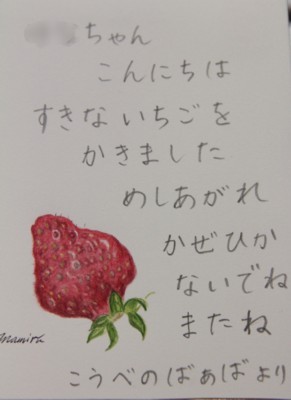 ちゃん
こんにちは
すきないちごを
かきました
めしあがれ
かぜひか
ないでね
またね
こうべのばぁばより